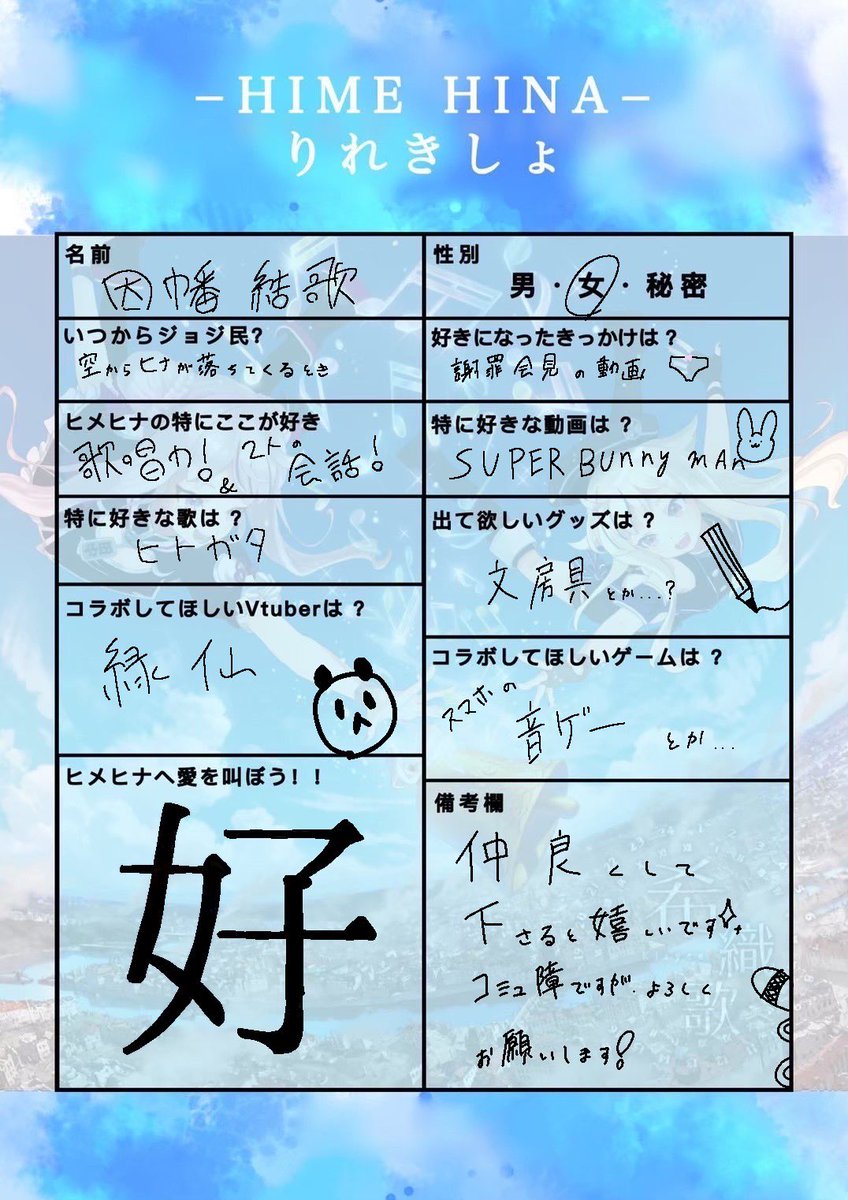 –HIME HINA–
りれきしょ
名前
因幡 結歌
性別
男・女・秘密
いつからジョジ民?
空からヒナが落ちてくるとき
好きになったきっかけは?
謝罪会見の動画
ヒメヒナの特にここが好き
歌唱力!&2人の会話!
特に好きな動画は?
SUPER BUnny mAn
特に好きな歌は?
ヒトガタ
出て欲しいグッズは?
文房具とか...?
コラボしてほしいVtuberは?
緑仙
コラボしてほしいゲームは?
スマホの
音ゲー とか...
ヒメヒナへ愛を叫ぼう!!
好
備考欄
仲良くして
下さると嬉しいです
コミュ障ですが、よろしく
お願いします!
希織歌